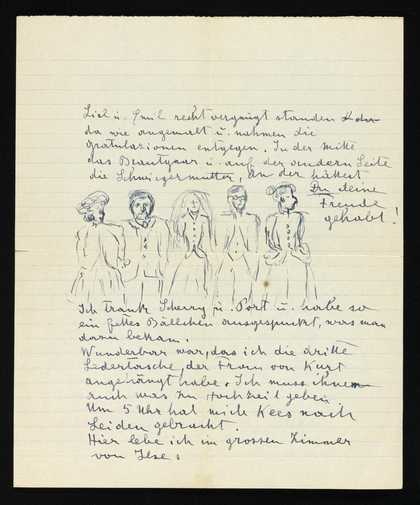 Liesl u. Emil recht vergnügt standen
da wie angemalt u. nahmen die
gratulationen entgegen. In der Mitte
das Brautpaar u. auf der andern Seite
die Schwiegermutter, an der hättest
Du deine
Freude
gehabt!
Ich trank Scherry u. Port u. habe so
ein fettes Bällchen ausgespuckt, was man
dazu bekam.
Wunderbar war, das ich die dritte
Ledertasche, der Frau von Kurt
angehängt habe. Ich muss ihnen
auch was zu Hochzeit geben
Um 5 Uhr hat mich Kees nach
Leiden gebracht.
Hier lebe ich im grossen Zimmer
von Ilse.